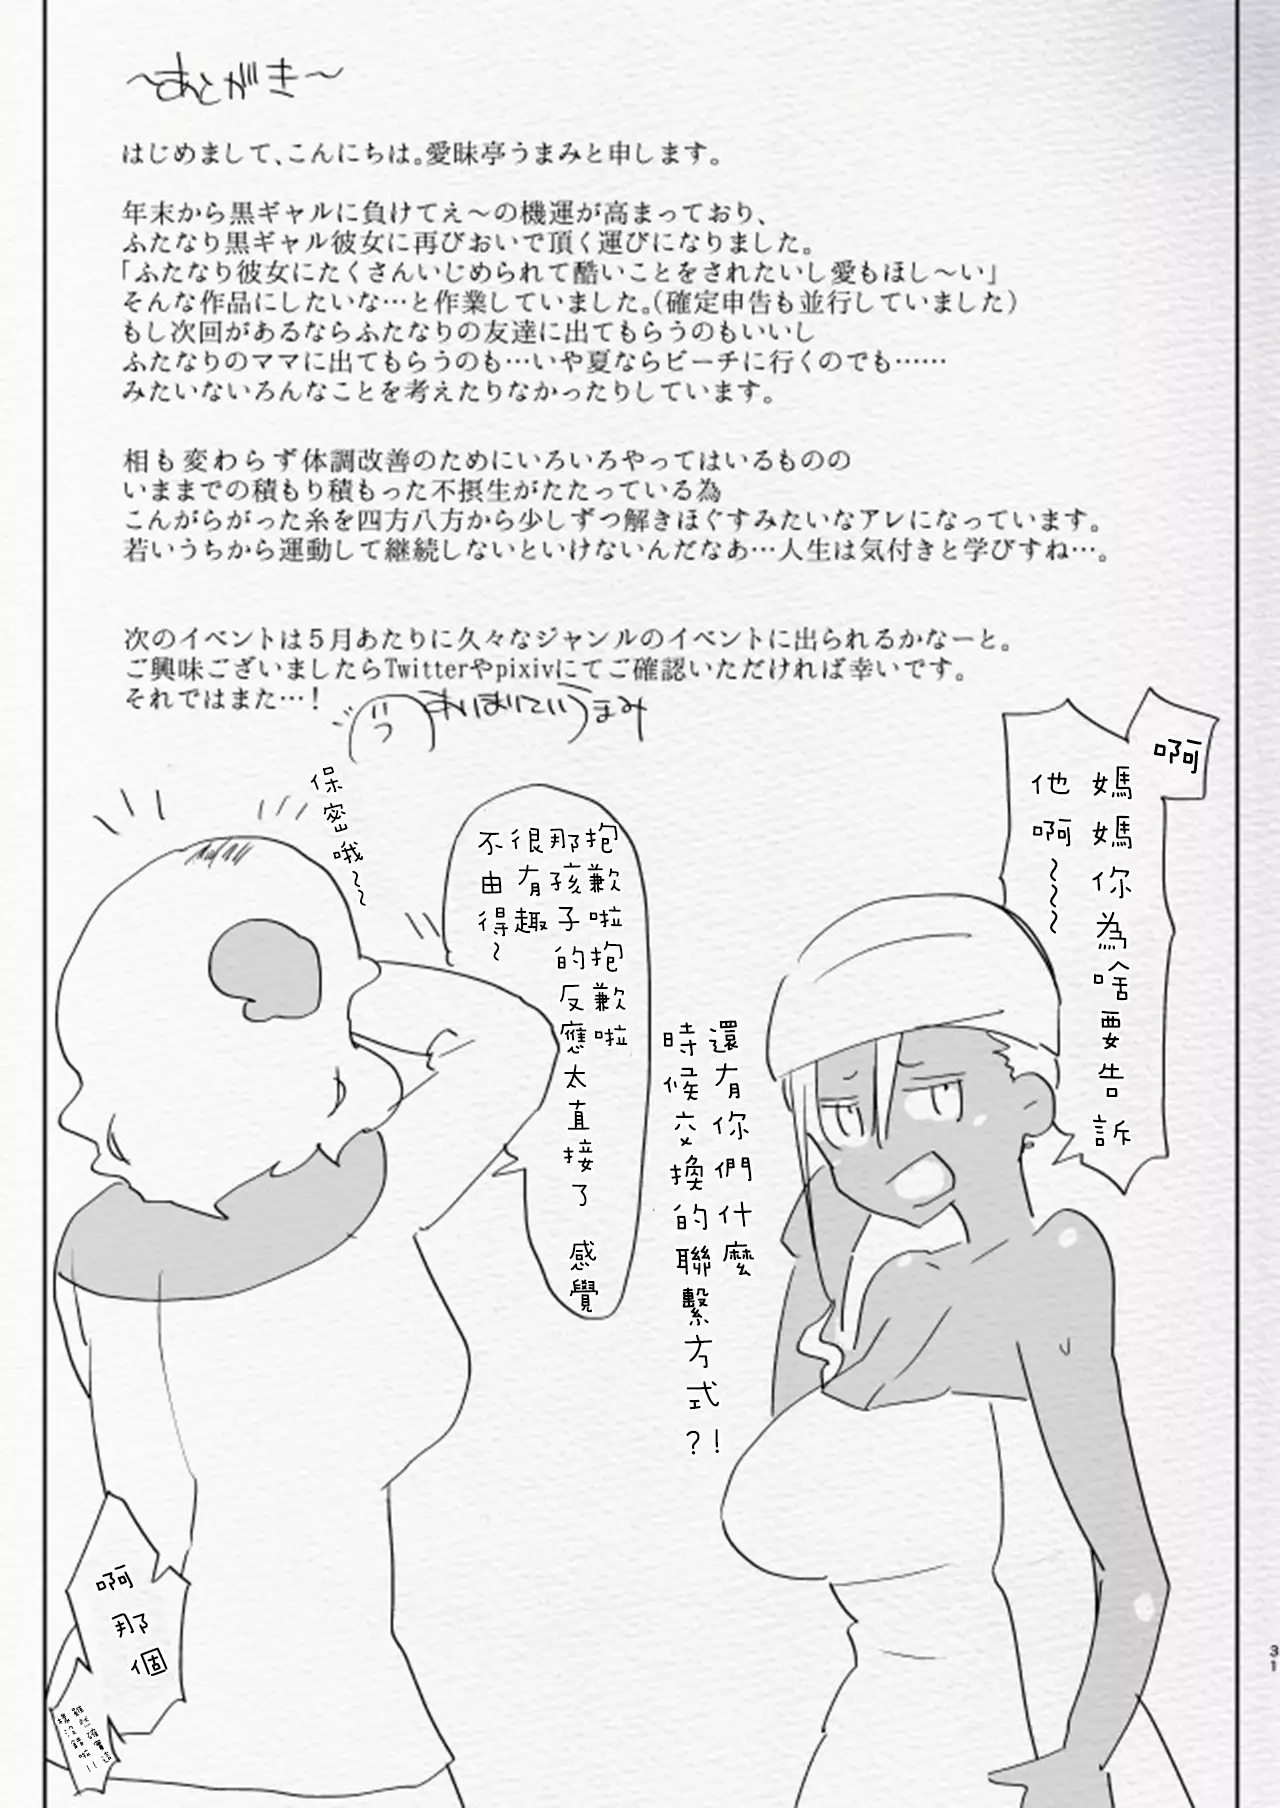 ～あとがき～
はじめまして、こんにちは。愛昧亭うまみと申します。
年末から黒ギャルに負けてえ～の機運が高まっており、
ふたなり黒ギャル彼女に再びおいで頂く運びになりました。
「ふたなり彼女にたくさんいじめられて酷いことをされたいし愛もほし～い」
そんな作品にしたいな…と作業していました。（確定申告も並行していました）
もし次回があるならふたなりの友達に出てもらうのもいいし
ふたなりのママに出てもらうのも…いや夏ならビーチに行くのでも……
みたいないろんなことを考えたりなかったりしています。
相も変わらず体調改善のためにいろいろやってはいるものの
いままでの積もり積もった不摂生がたたっている為
こんがらがった糸を四方八方から少しずつ解きほぐすみたいなアレになっています。
若いうちから運動して継続しないといけないんだなあ…人生は気付きと学びすね…。
次のイベントは５月あたりに久々なジャンルのイベントに出られるかなーと。
ご興味ございましたらTwitterやpixivにてご確認いただければ幸いです。
それではまた…！
あいまいていうまみ
啊
媽媽你為啥要告訴
他啊～～～
還有你們什麼
時候交換的聯繫方式？！
抱歉啦抱歉啦
那孩子的反應太直接了 感覺
很有趣
不由得～
保密哦～～
啊
那
個
雖然確實這
樣沒錯啦！！
31